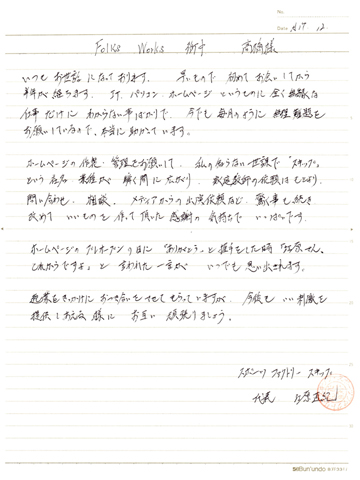 No.
Date
Folks Works 御中 高橋様
いつもお世話になっております。早いもので初めてお会いしてから
半年が経ちます。IT、パソコン、ホームページというものに全く無縁な
仕事だけにわからない事ばかりで、今でも毎月のように無理難題を
お願いしているので、本当に助かっています。
ホームページの作成・管理をお願いして、私の知らない世界で“スキップ”
という名前・業種が瞬く間に広がり、家庭教師の依頼はもとより、
問い合わせ、相談、メディアからの出演依頼など、驚く事も続き
改めていいものを作って頂いた感謝の気持ちでいっぱいです。
ホームページのプレオープンの日に“ありがとう”と握手をした時
これからですよ」と言われた一言がいつでも思い出されます。
をきっかけにお付き合いをさせてもらっていますが、今後もいい刺激を
提供しあえる様にお互い頑張りましょう。
スポーツファクトリー スキップ
代表